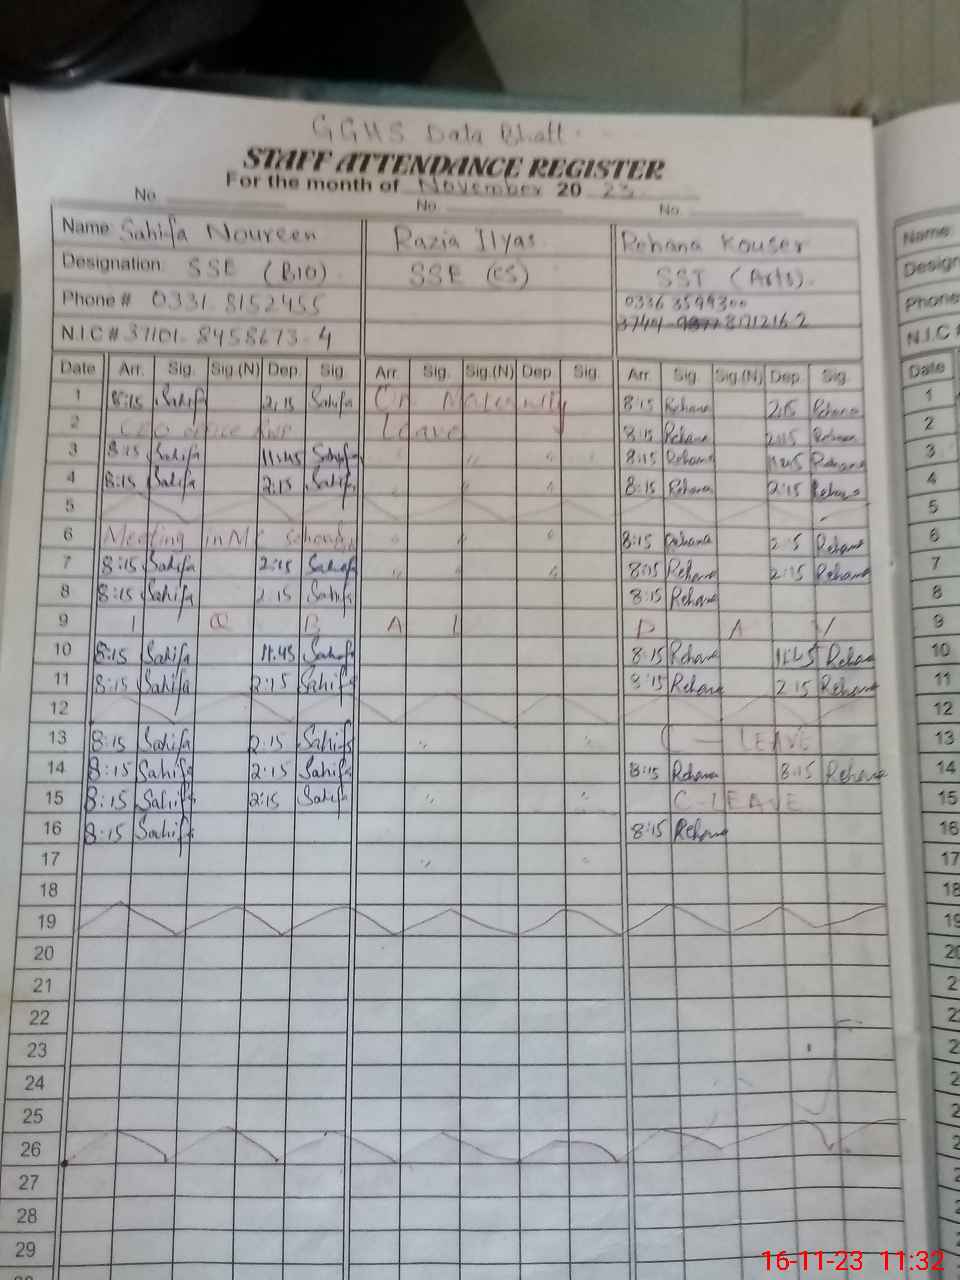 GGHS Data Bhatt
STAFF ATTENDANCE REGISTER
For the month of November 20 23
No. No. No.
Name Sahifa Noureen Razia Ilyas Rehana Kouser
Designation: SSE (BIO) SSE (CS) SST (Arts).
Phone # 0331-8152455 0336 3599300
N.I.C # 37101-8458673-4
Date Arr. Sig. Sig.(N) Dep. Sig. Arr. Sig. Sig.(N) Dep. Sig. Arr. Sig. Sig.(N) Dep. Sig.
1 8:15 Sahifa 2:15 Sahifa On Maternity 8:15 Rehana 2:15 Rehana 1
2 CEO office RWP Leave 8:15 Rehana 2:15 Rehana 2
3 8:15 Sahifa 11:45 Sahifa 8:15 Rehana 11:45 Rehana 3
4 8:15 Sahifa 2:15 Sahifa 8:15 Rehana 2:15 Rehana 4
5 5
6 Meeting in 8:15 Rehana 2:15 Rehana 6
7 8:15 Sahifa 2:15 Sahifa 8:15 Rehana 2:15 Rehana 7
8 8:15 Sahifa 2:15 Sahifa 8:15 Rehana 8
9 I Q B A L D A Y 9
10 8:15 Sahifa 11:45 Sahifa 8:15 Rehana 11:45 Rehana 10
11 8:15 Sahifa 2:15 Sahifa 8:15 Rehana 2:15 Rehana 11
12 12
13 8:15 Sahifa 2:15 Sahifa C - LEAVE 13
14 8:15 Sahifa 2:15 Sahifa 8:15 Rehana 8:15 Rehana 14
15 8:15 Sahifa 2:15 Sahifa C-LEAVE 15
16 8:15 Sahifa 8:15 Rehana 16
17 17
18 18
19 19
20
21
22
23
24
25
26
27
28
29
Name
Phone #
N.I.C #
Date
16-11-23 11:32